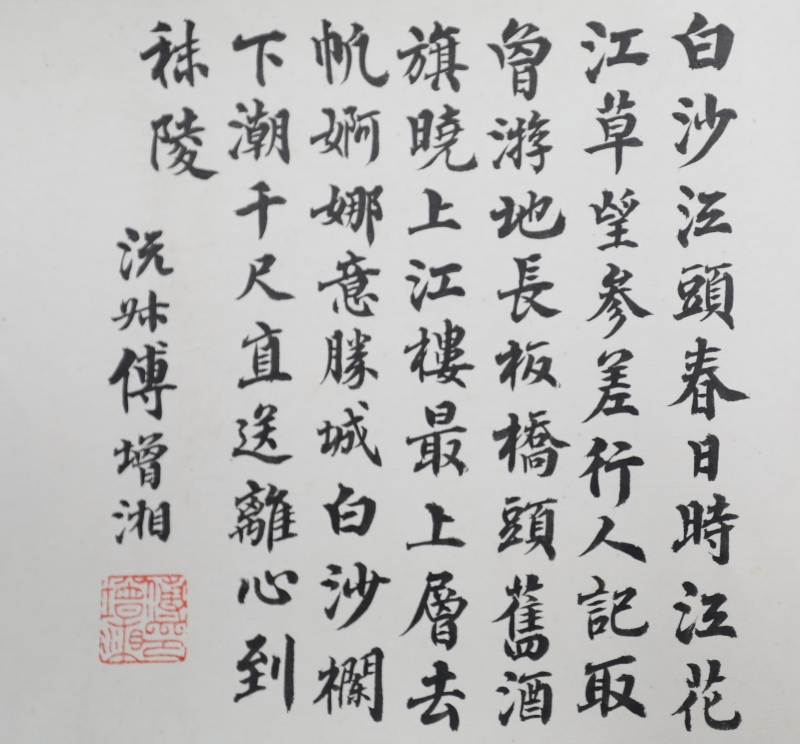 白沙江頭春日時江花
江草望參差行人記取
曾游地長板橋頭舊酒
旗曉上江樓最上層去
帆婀娜意勝城白沙欄
下潮千尺直送離心到
秣陵
沅叔傅增湘
傅增湘印